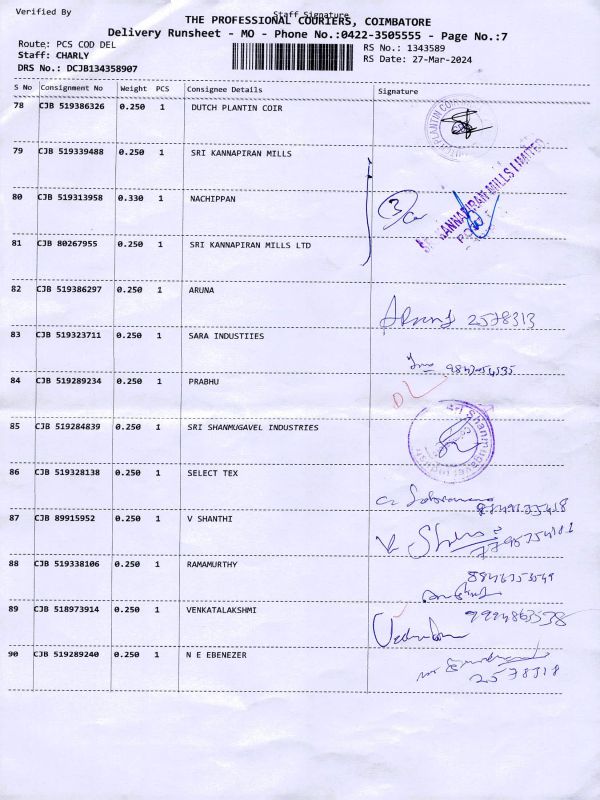 Verified By
Staff Signature
THE PROFESSIONAL COURIERS, COIMBATORE
Delivery Runsheet - MO - Phone No.:0422-3505555 - Page No.:7
Route: PCS COD DEL
RS No.: 1343589
Staff: CHARLY
RS Date: 27-Mar-2024
DRS No.: DCJB134358907
S No Consignment No Weight PCS Consignee Details Signature
78 CJB 519386326 0.250 1 DUTCH PLANTIN COIR
79 CJB 519339488 0.250 1 SRI KANNAPIRAN MILLS
KANNAPIRAN MILLS LIMITED
80 CJB 519313958 0.330 1 NACHIPPAN
81 CJB 80267955 0.250 1 SRI KANNAPIRAN MILLS LTD
82 CJB 519386297 0.250 1 ARUNA
2578313
83 CJB 519323711 0.250 1 SARA INDUSTIIES
84 CJB 519289234 0.250 1 PRABHU
DL
85 CJB 519284839 0.250 1 SRI SHANMUGAVEL INDUSTRIES
86 CJB 519328138 0.250 1 SELECT TEX
87 CJB 89915952 0.250 1 V SHANTHI
88 CJB 519338106 0.250 1 RAMAMURTHY
89 CJB 518973914 0.250 1 VENKATALAKSHMI
90 CJB 519289240 0.250 1 N E EBENEZER